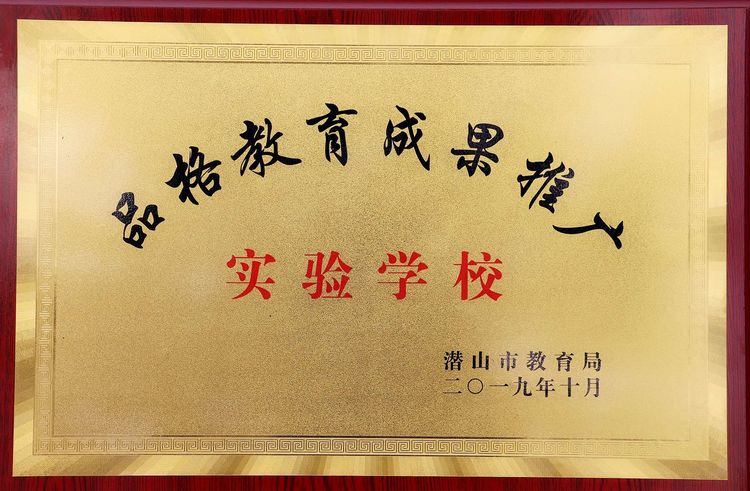 品格教育成果推广
实验学校
潜山市教育局
二〇一九年十月